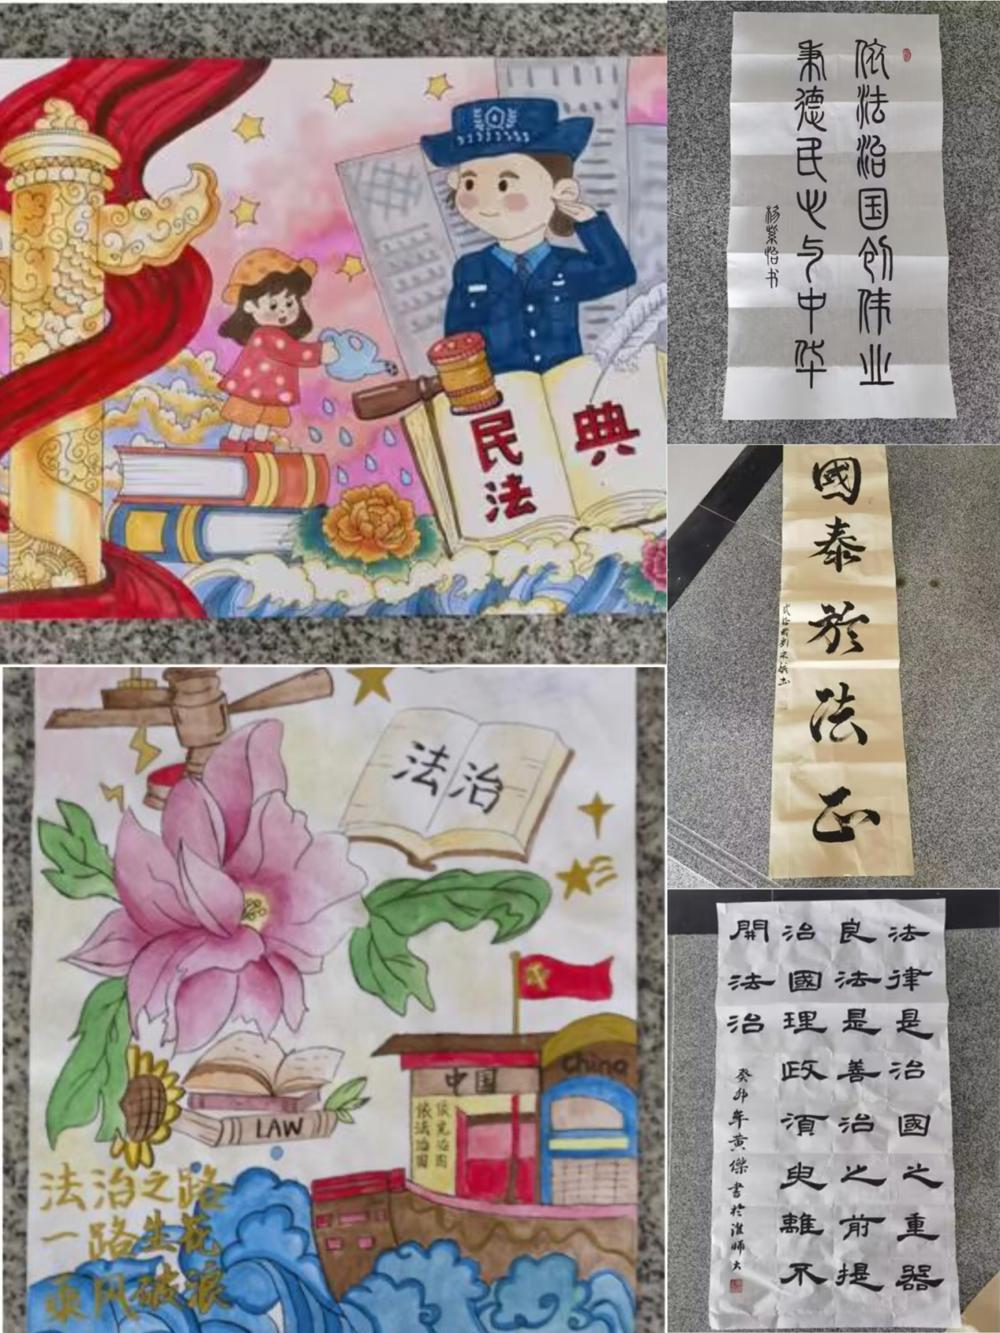 民法
典
法治
中国
China
依法治国
依宪治国
LAW
法治之路
一路生花
乘风破浪
依法治国创伟业
秉德民心与中华
杨紫怡书
國泰於法正
法律是治國之重器
良法是善治之前提
治國理政須臾離不
開法治
癸卯年黄傑書於淮師大